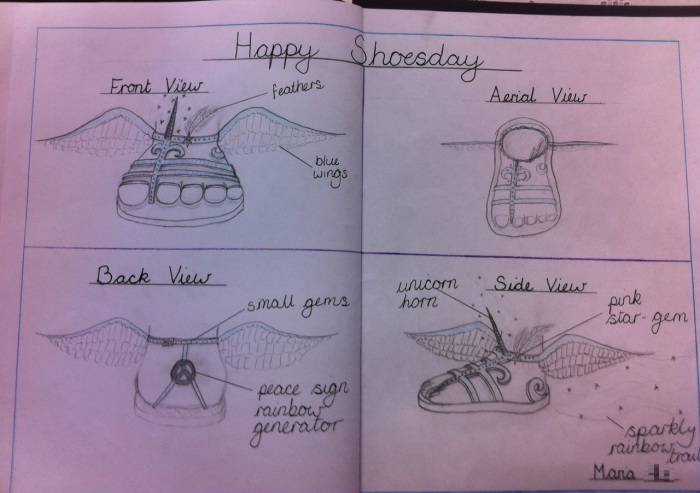 Happy Shoesday
Front View
feathers
blue
wings
Aerial View
Back View
small gems
peace sign
rainbow
generator
unicorn
horn
Side View
pink
star-gem
sparkly
rainbow trail
Maria